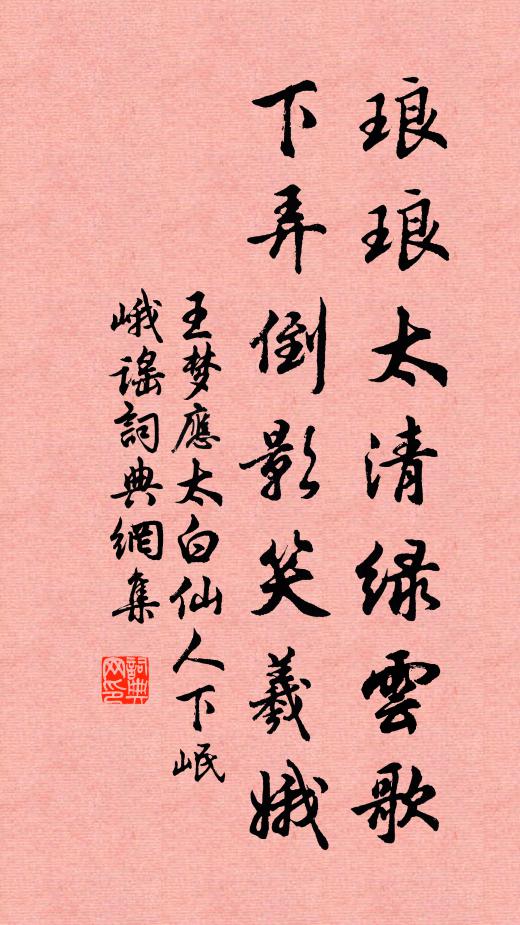 琅琅太清绿雲歌
下弄倒影笑羲娥
王梦應太白仙人下岷
峨谣詞典網集
詞典
网印